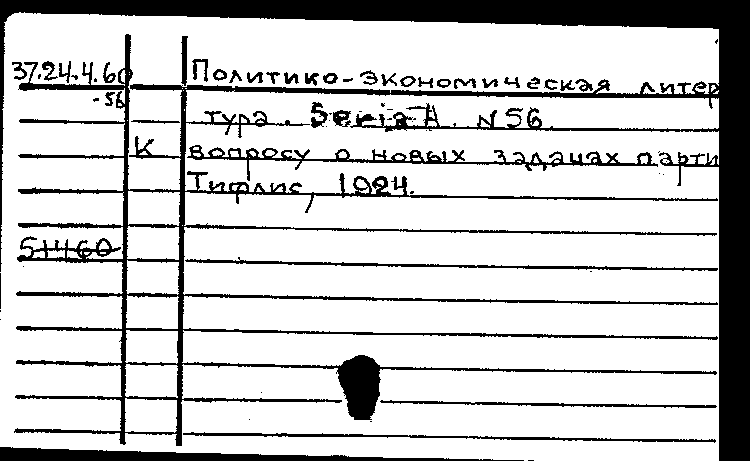 37.24.4.60 Политико-экономическая литер
-56 тура. Seria A. N 56.
К вопросу о новых задачах парти
Тифлис, 1924.
51460